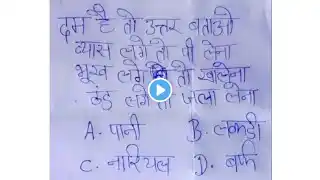 दम है तो उत्तर बताओ
प्यास लगे तो पी लेना
भूख लगे तो खालेना
ठंड लगे तो जला लेना
A. पानी B. लकड़ी
C. नारियल D. बर्फ